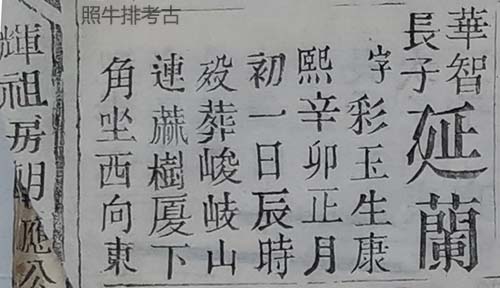 照牛排考古
華智長子延蘭
字彩玉生康
熙辛卯正月
初一日辰時
殁葬峻岐山
連蔴樹厦下
角坐西向東
輝祖房明應公